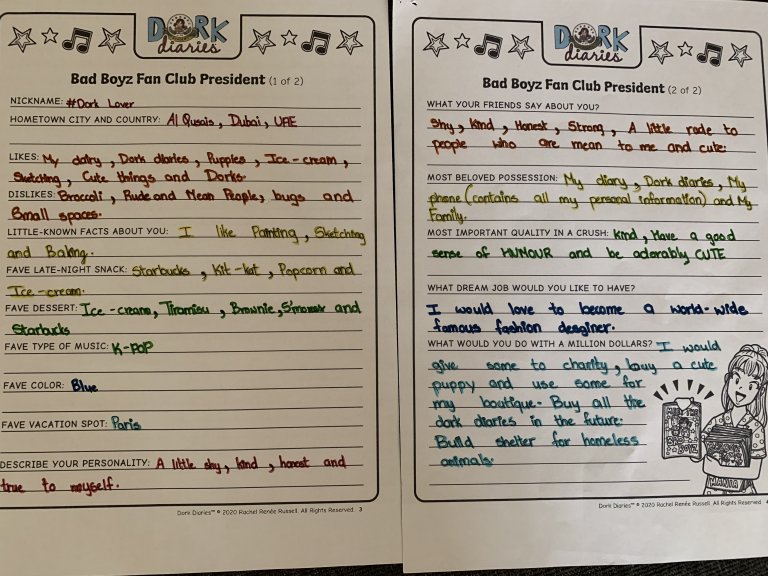 DORK
diaries
Bad Boyz Fan Club President (1 of 2)
NICKNAME: #Dork Lover
HOMETOWN CITY AND COUNTRY: Al Qusais, Dubai, UAE
LIKES: My dairy, Dork diaries, Puppies, Ice-cream,
Sketching, Cute things and Dorks.
DISLIKES: Broccoli, Rude and Mean People, bugs and
Small spaces.
LITTLE-KNOWN FACTS ABOUT YOU: I like Painting, Sketching
and Baking.
FAVE LATE-NIGHT SNACK: Starbucks, Kit-kat, Popcorn and
Ice-cream.
FAVE DESSERT: Ice-cream, Tiramisu, Brownie, S'mores and
Starbucks
FAVE TYPE OF MUSIC: K-POP
FAVE COLOR: Blue
FAVE VACATION SPOT: Paris
DESCRIBE YOUR PERSONALITY: A little shy, kind, honest and
true to myself.
Dork Diaries™ © 2020 Rachel Renée Russell. All Rights Reserved. 3
DORK
diaries
Bad Boyz Fan Club President (2 of 2)
WHAT YOUR FRIENDS SAY ABOUT YOU?
Shy, Kind, Honest, Strong, A little rude to
people who are mean to me and cute.
MOST BELOVED POSSESSION: My diary, Dork diaries, My
phone (contains all my personal information) and My
Family.
MOST IMPORTANT QUALITY IN A CRUSH: Kind, Have a good
sense of HUMOUR and be adorably CUTE
WHAT DREAM JOB WOULD YOU LIKE TO HAVE?
I would love to become a world-wide
famous fashion desginer.
WHAT WOULD YOU DO WITH A MILLION DOLLARS? I would
give some to charity, buy a cute
puppy and use some for
my boutique. Buy all the
dork diaries in the future.
Build shelter for homeless
animals.
Dork Diaries™ © 2020 Rachel Renée Russell. All Rights Reserved. 4